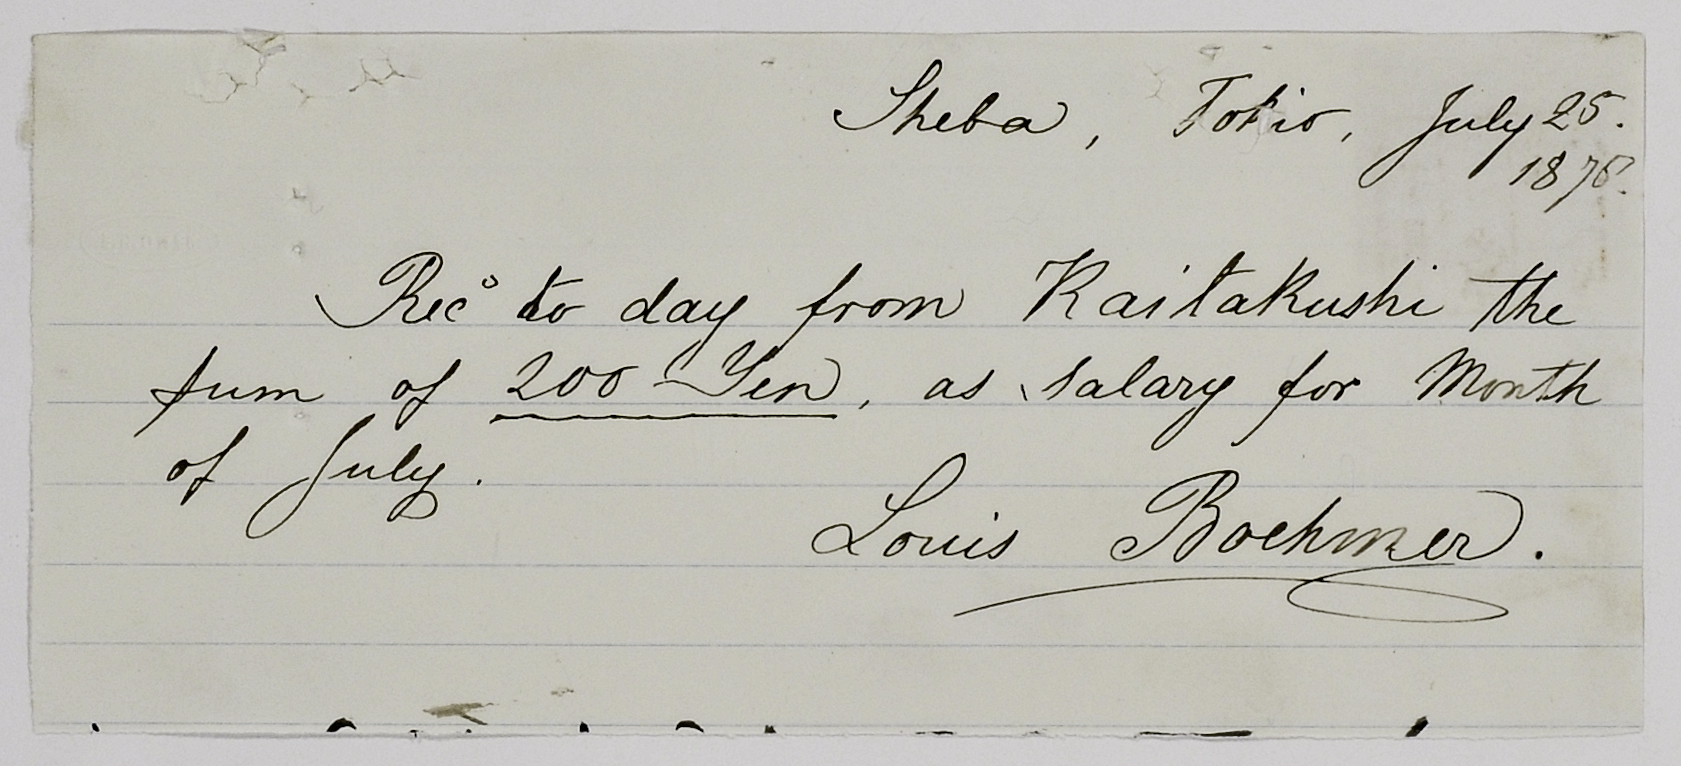 Sheba, Tokio, July 25.
1875.
Rec° to day from Kaitakushi the
sum of 200 Yen, as salary for Month
of July.
Louis Boehmer.